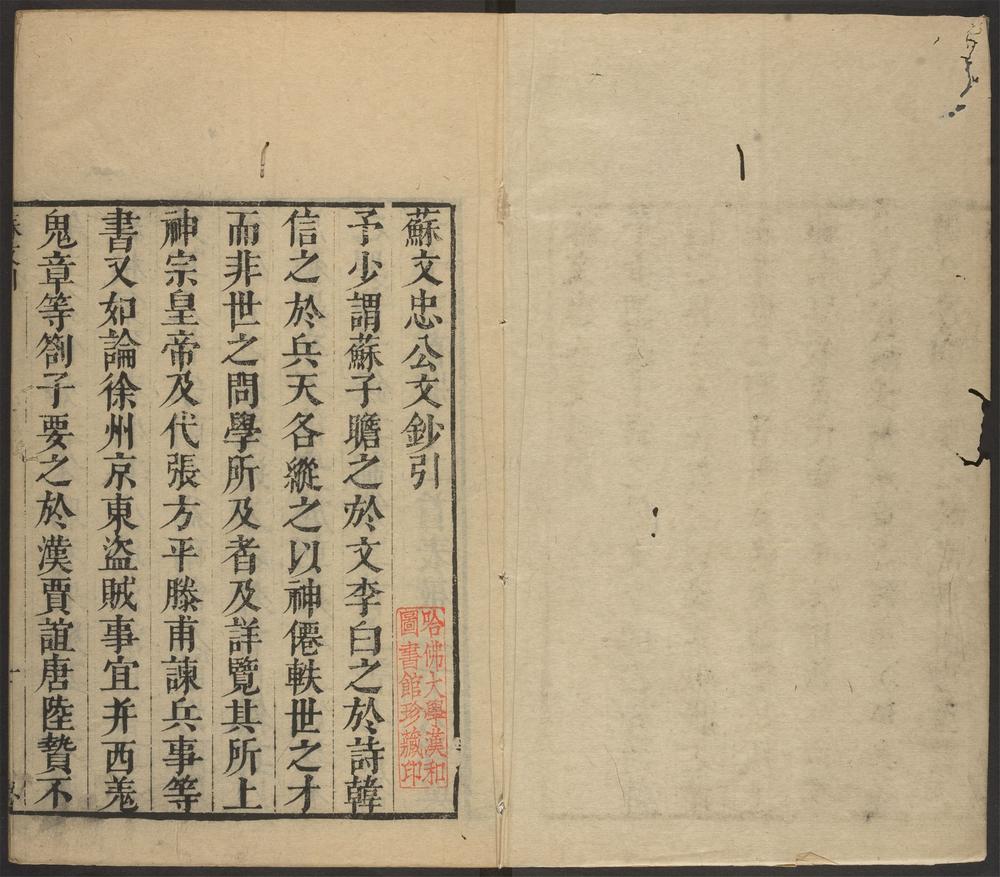 蘇文忠公文鈔引
予少謂蘇子瞻之於文李白之於詩韓
信之於兵天各縱之以神僊軼世之才
而非世之問學所及者及詳覽其所上
神宗皇帝及代張方平滕甫諫兵事等
書又如論徐州京東盜賊事宜并西羗
鬼章等劄子要之於漢賈誼唐陸贄不
哈佛大學漢和
圖書館珍藏印